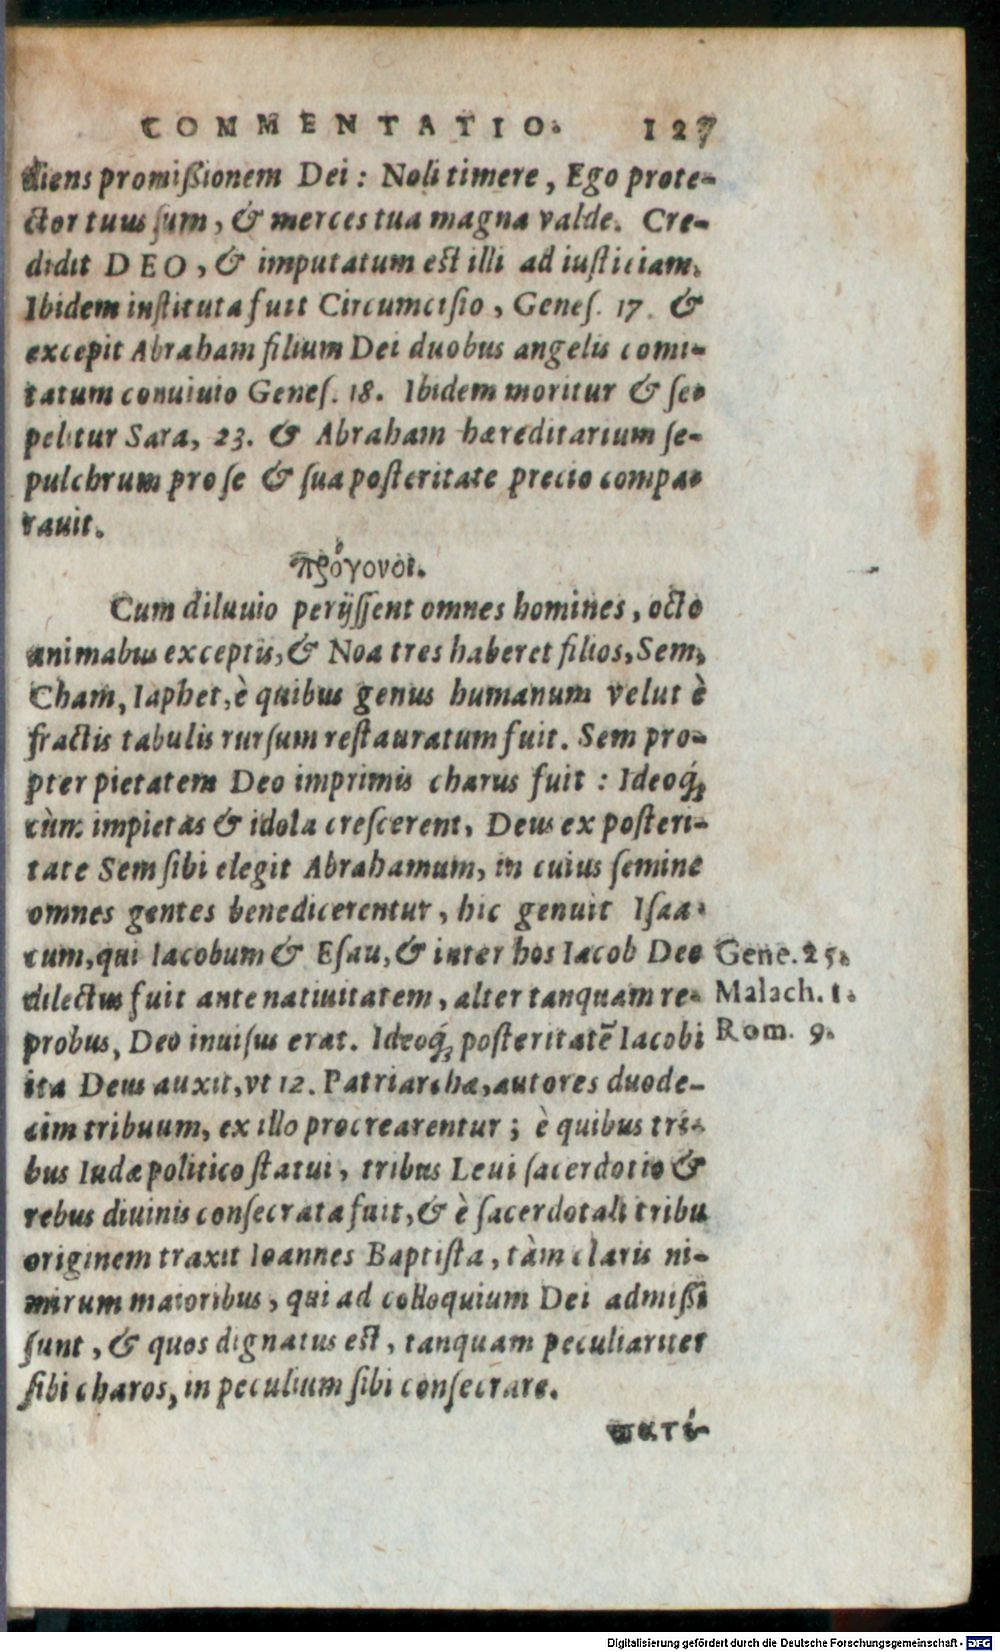 COMMENTATIO. 127
diens promißionem Dei: Noli timere, Ego prote-
ctor tuus ſum, & merces tua magna valde. Cre-
didit DEO, & imputatum est illi ad iuſticiam.
Ibidem inſtituta fuit Circumciſio, Geneſ. 17. &
excepit Abraham filium Dei duobus angelis comi-
tatum conuiuio Geneſ. 18. Ibidem moritur & ſe-
pelitur Sara, 23. & Abraham hæreditarium ſe-
pulchrum pro ſe & ſua poſteritate precio compa-
rauit.
πρόγονοι.
Cum diluuio perijſſent omnes homines, octo
animabus exceptis, & Noa tres haberet filios, Sem,
Cham, Iaphet, è quibus genus humanum velut è
fractis tabulis rurſum reſtauratum fuit. Sem pro-
pter pietatem Deo imprimis charus fuit: Ideoq́;
cùm impietas & idola creſcerent, Deus ex poſteri-
tate Sem ſibi elegit Abrahamum, in cuius ſemine
omnes gentes benedicerentur, hic genuit Iſaa-
cum, qui Iacobum & Eſau, & inter hos Iacob Deo Gene. 25.
dilectus fuit ante natiuitatem, alter tanquam re- Malach. 1.
probus, Deo inuiſus erat. Ideoq́; poſteritatẽ Iacobi Rom. 9.
ita Deus auxit, vt 12. Patriarchæ, autores duode-
cim tribuum, ex illo procrearentur; è quibus tri-
bus Iudæ politico ſtatui, tribus Leui ſacerdotio &
rebus diuinis conſecrata fuit, & è ſacerdotali tribu
originem traxit Ioannes Baptiſta, tàm claris ni-
mirum maioribus, qui ad colloquium Dei admißi
ſunt, & quos dignatus est, tanquam peculiariter
ſibi charos, in peculium ſibi conſecrare.
πατί-
Digitalisierung gefördert durch die Deutsche Forschungsgemeinschaft - DFG